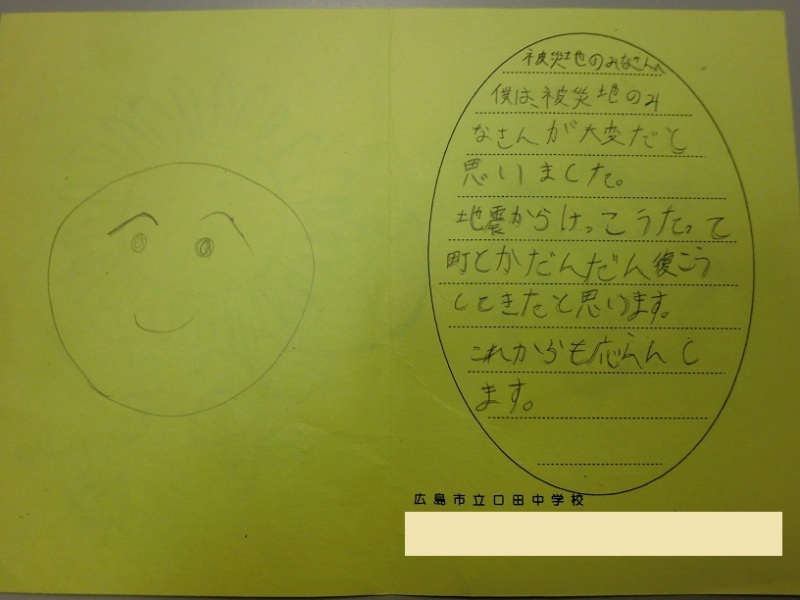 被災地のみなさんへ
僕は、被災地のみ
なさんが大変だと
思いました。
地震からけっこうたって
町とかだんだん復こう
してきたと思います。
これからも応えんし
ます。
広島市立口田中学校